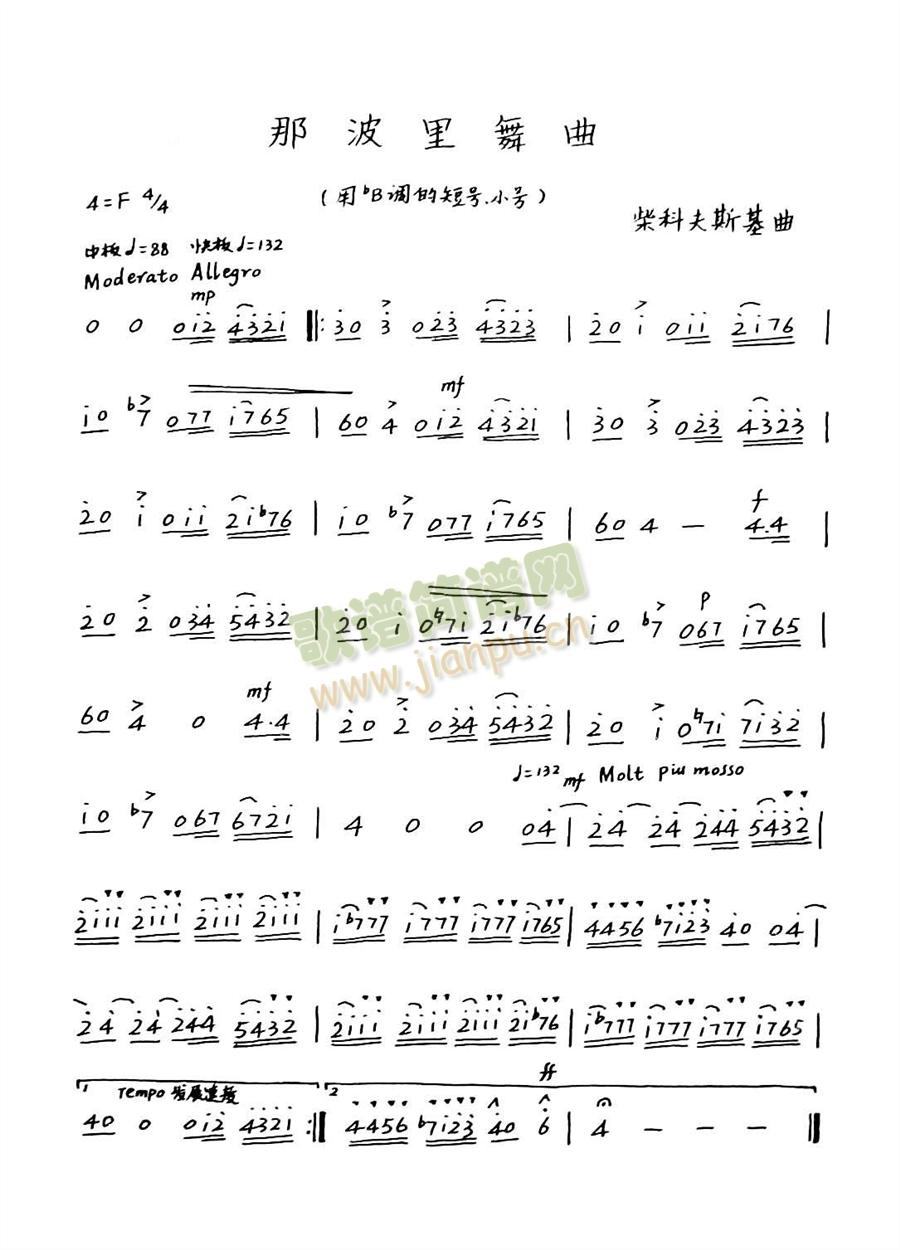 那波里舞曲
4=F 4/4
(用♭B调的短号、小号)
柴科夫斯基曲
中板♩=88 快板♩=132
Moderato Allegro
mp
0 0 0i̇2̇ 4̇3̇2̇i̇ ‖: 3̇0 3̇ 02̇3̇ 4̇3̇2̇3̇ | 2̇0 i̇ 0i̇i̇ 2̇i̇76 |
mf
i̇0 ♭7 077 i̇765 | 60 4 0i̇2̇ 4̇3̇2̇i̇ | 3̇0 3̇ 02̇3̇ 4̇3̇2̇3̇ |
f
2̇0 i̇ 0i̇i̇ 2̇i̇♭76 | i̇0 ♭7 077 i̇765 | 60 4 — 4.4 |
p
2̇0 2̇ 03̇4̇ 5̇4̇3̇2̇ | 2̇0 i̇ 0♮7i̇ 2̇i̇♭76 | i̇0 ♭7 067 i̇765 |
mf
60 4 0 4.4 | 2̇0 2̇ 03̇4̇ 5̇4̇3̇2̇ | 2̇0 i̇ 0♮7i̇ 7i̇3̇2̇ |
♩=132 mf Molt piu mosso
i̇0 ♭7 067 672̇i̇ | 4 0 0 04̇ | 2̇4̇ 2̇4̇ 2̇4̇4̇ 5̇4̇3̇2̇ |
2̇i̇i̇i̇ 2̇i̇i̇i̇ 2̇i̇i̇i̇ 2̇i̇i̇i̇ | i̇♭777 i̇777 i̇777 i̇765 | 4456 ♭7i̇2̇3̇ 4̇0 04̇ |
2̇4̇ 2̇4̇ 2̇4̇4̇ 5̇4̇3̇2̇ | 2̇i̇i̇i̇ 2̇i̇i̇i̇ 2̇i̇i̇i̇ 2̇i̇♭76 | i̇♭777 i̇777 i̇777 i̇765 |
ff
1 Tempo 2
40 0 0i̇2̇ 4̇3̇2̇i̇ :‖ 4456 ♭7i̇2̇3̇ 4̇0 6̇ | 4 — — — ‖
歌谱简谱网
www.jianpu.cn